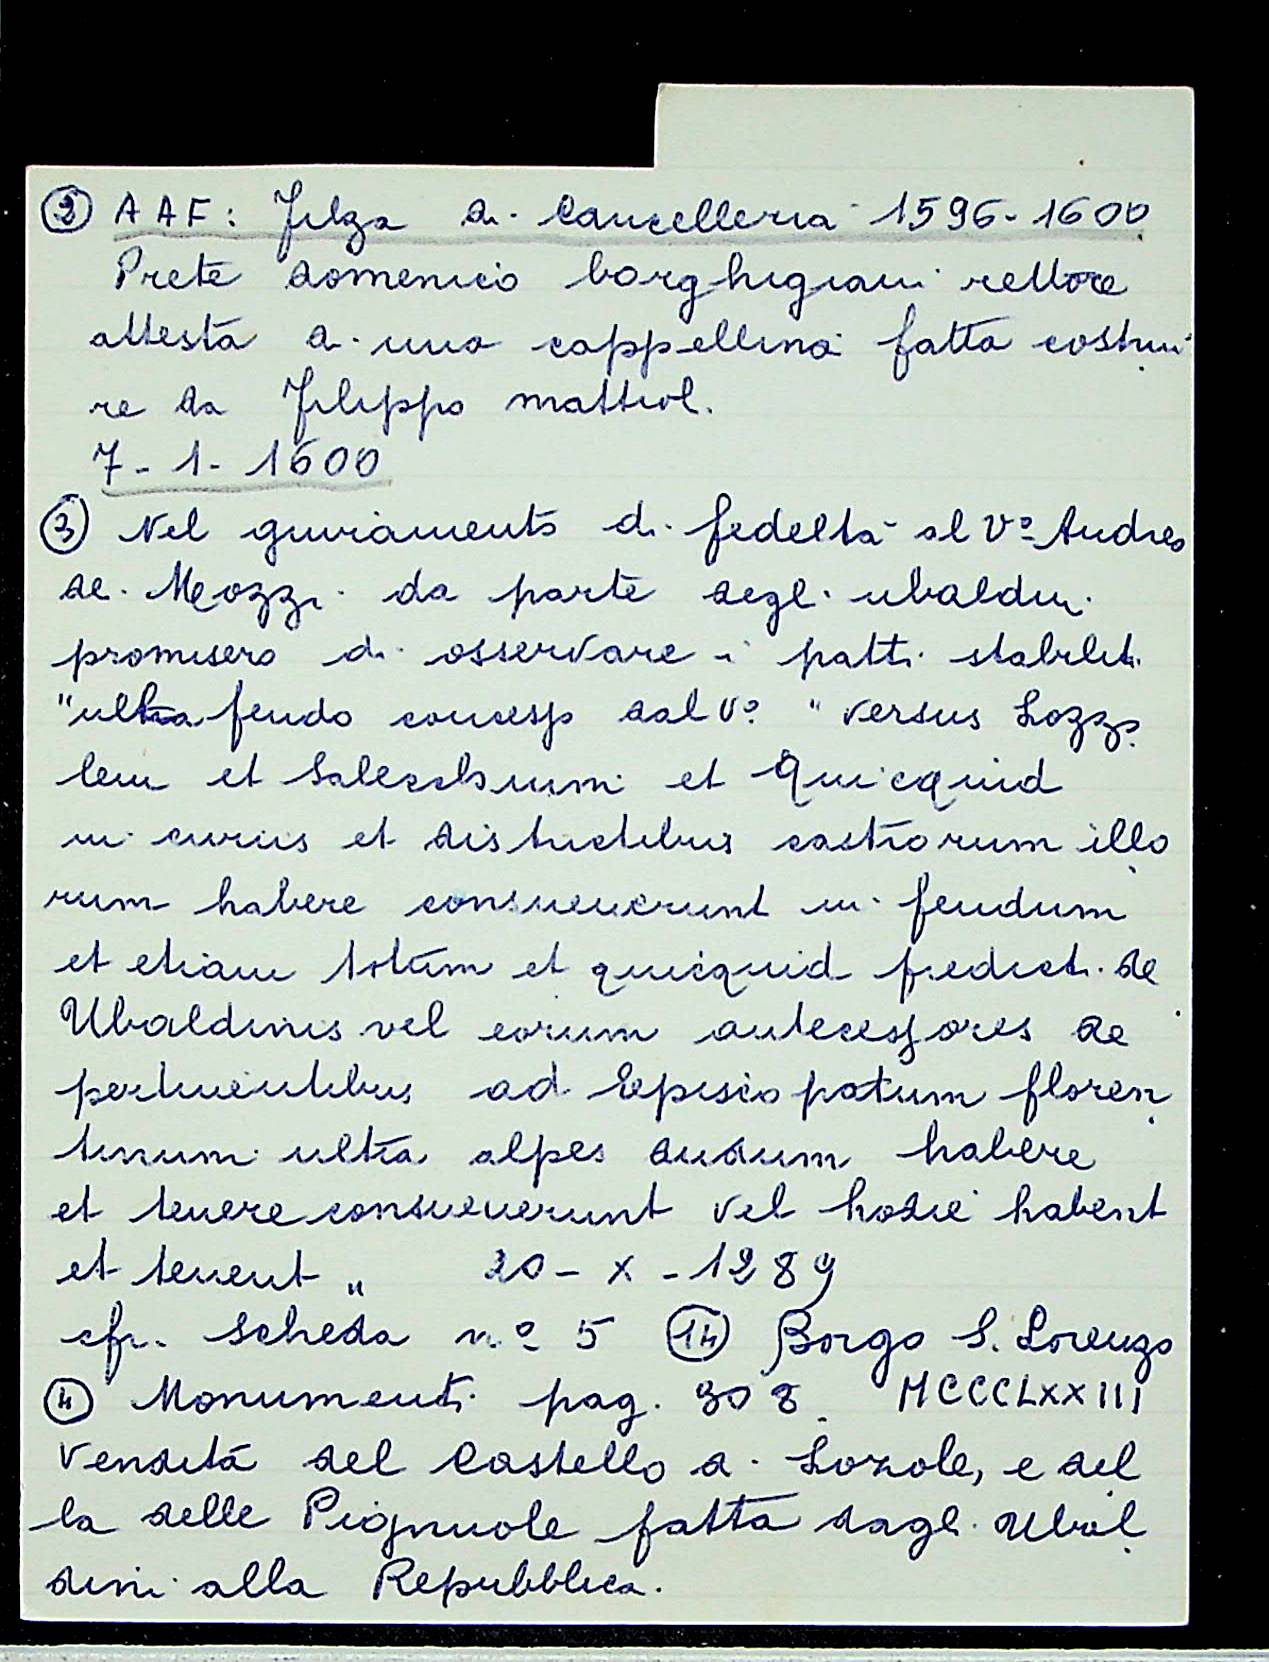 ② AAF: Filza di Cancelleria 1596-1600
Prete Domenico borghigiani rettore
attesta di una cappellina fatta costrui
re da Filippo mattiol.
7-1-1600
③ Nel giuramento di fedeltà al Vº Andrea
de Mozzi da parte degli ubaldini
promisero di osservare i patti stabiliti
"ultra feudo concesso dal Vº " versus Lozzo
lem et et Quicquid
in curiis et districtibus castrorum illo
rum habere consueverunt in feudum
et etiam totum et quicquid predicti de
Ubaldinis vel eorum antecessores de
pertinentibus ad Episcopatum floren
tinum ultra alpes dudum habere
et tenere consueverunt vel hodie habent
et tenent " 20-X-1289
cfr. scheda nº 5 ⑭ Borgo S. Lorenzo
④ Monumenti pag. 308. MCCCLXXIII
Vendita del Castello di Lozole, e del
la delle Pignuole fatta dagli Ubal
dini alla Repubblica.